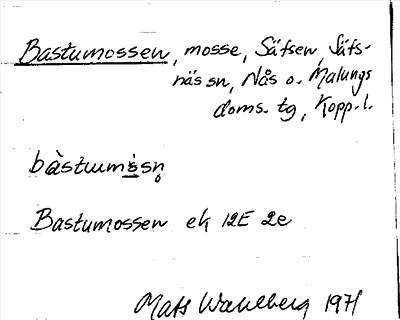 Bastumossen, mosse, Säfsen, Säfs-
näs sn, Nås o. Malungs
doms. tg, Kopp. l.
Bastumossen ek 12E 2e
Mats Wahlberg 1971